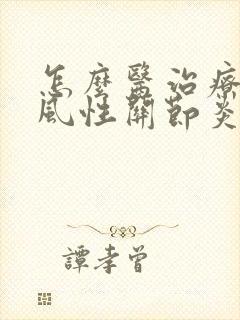 怎麼醫治療
風性關節炎
譚孝曾